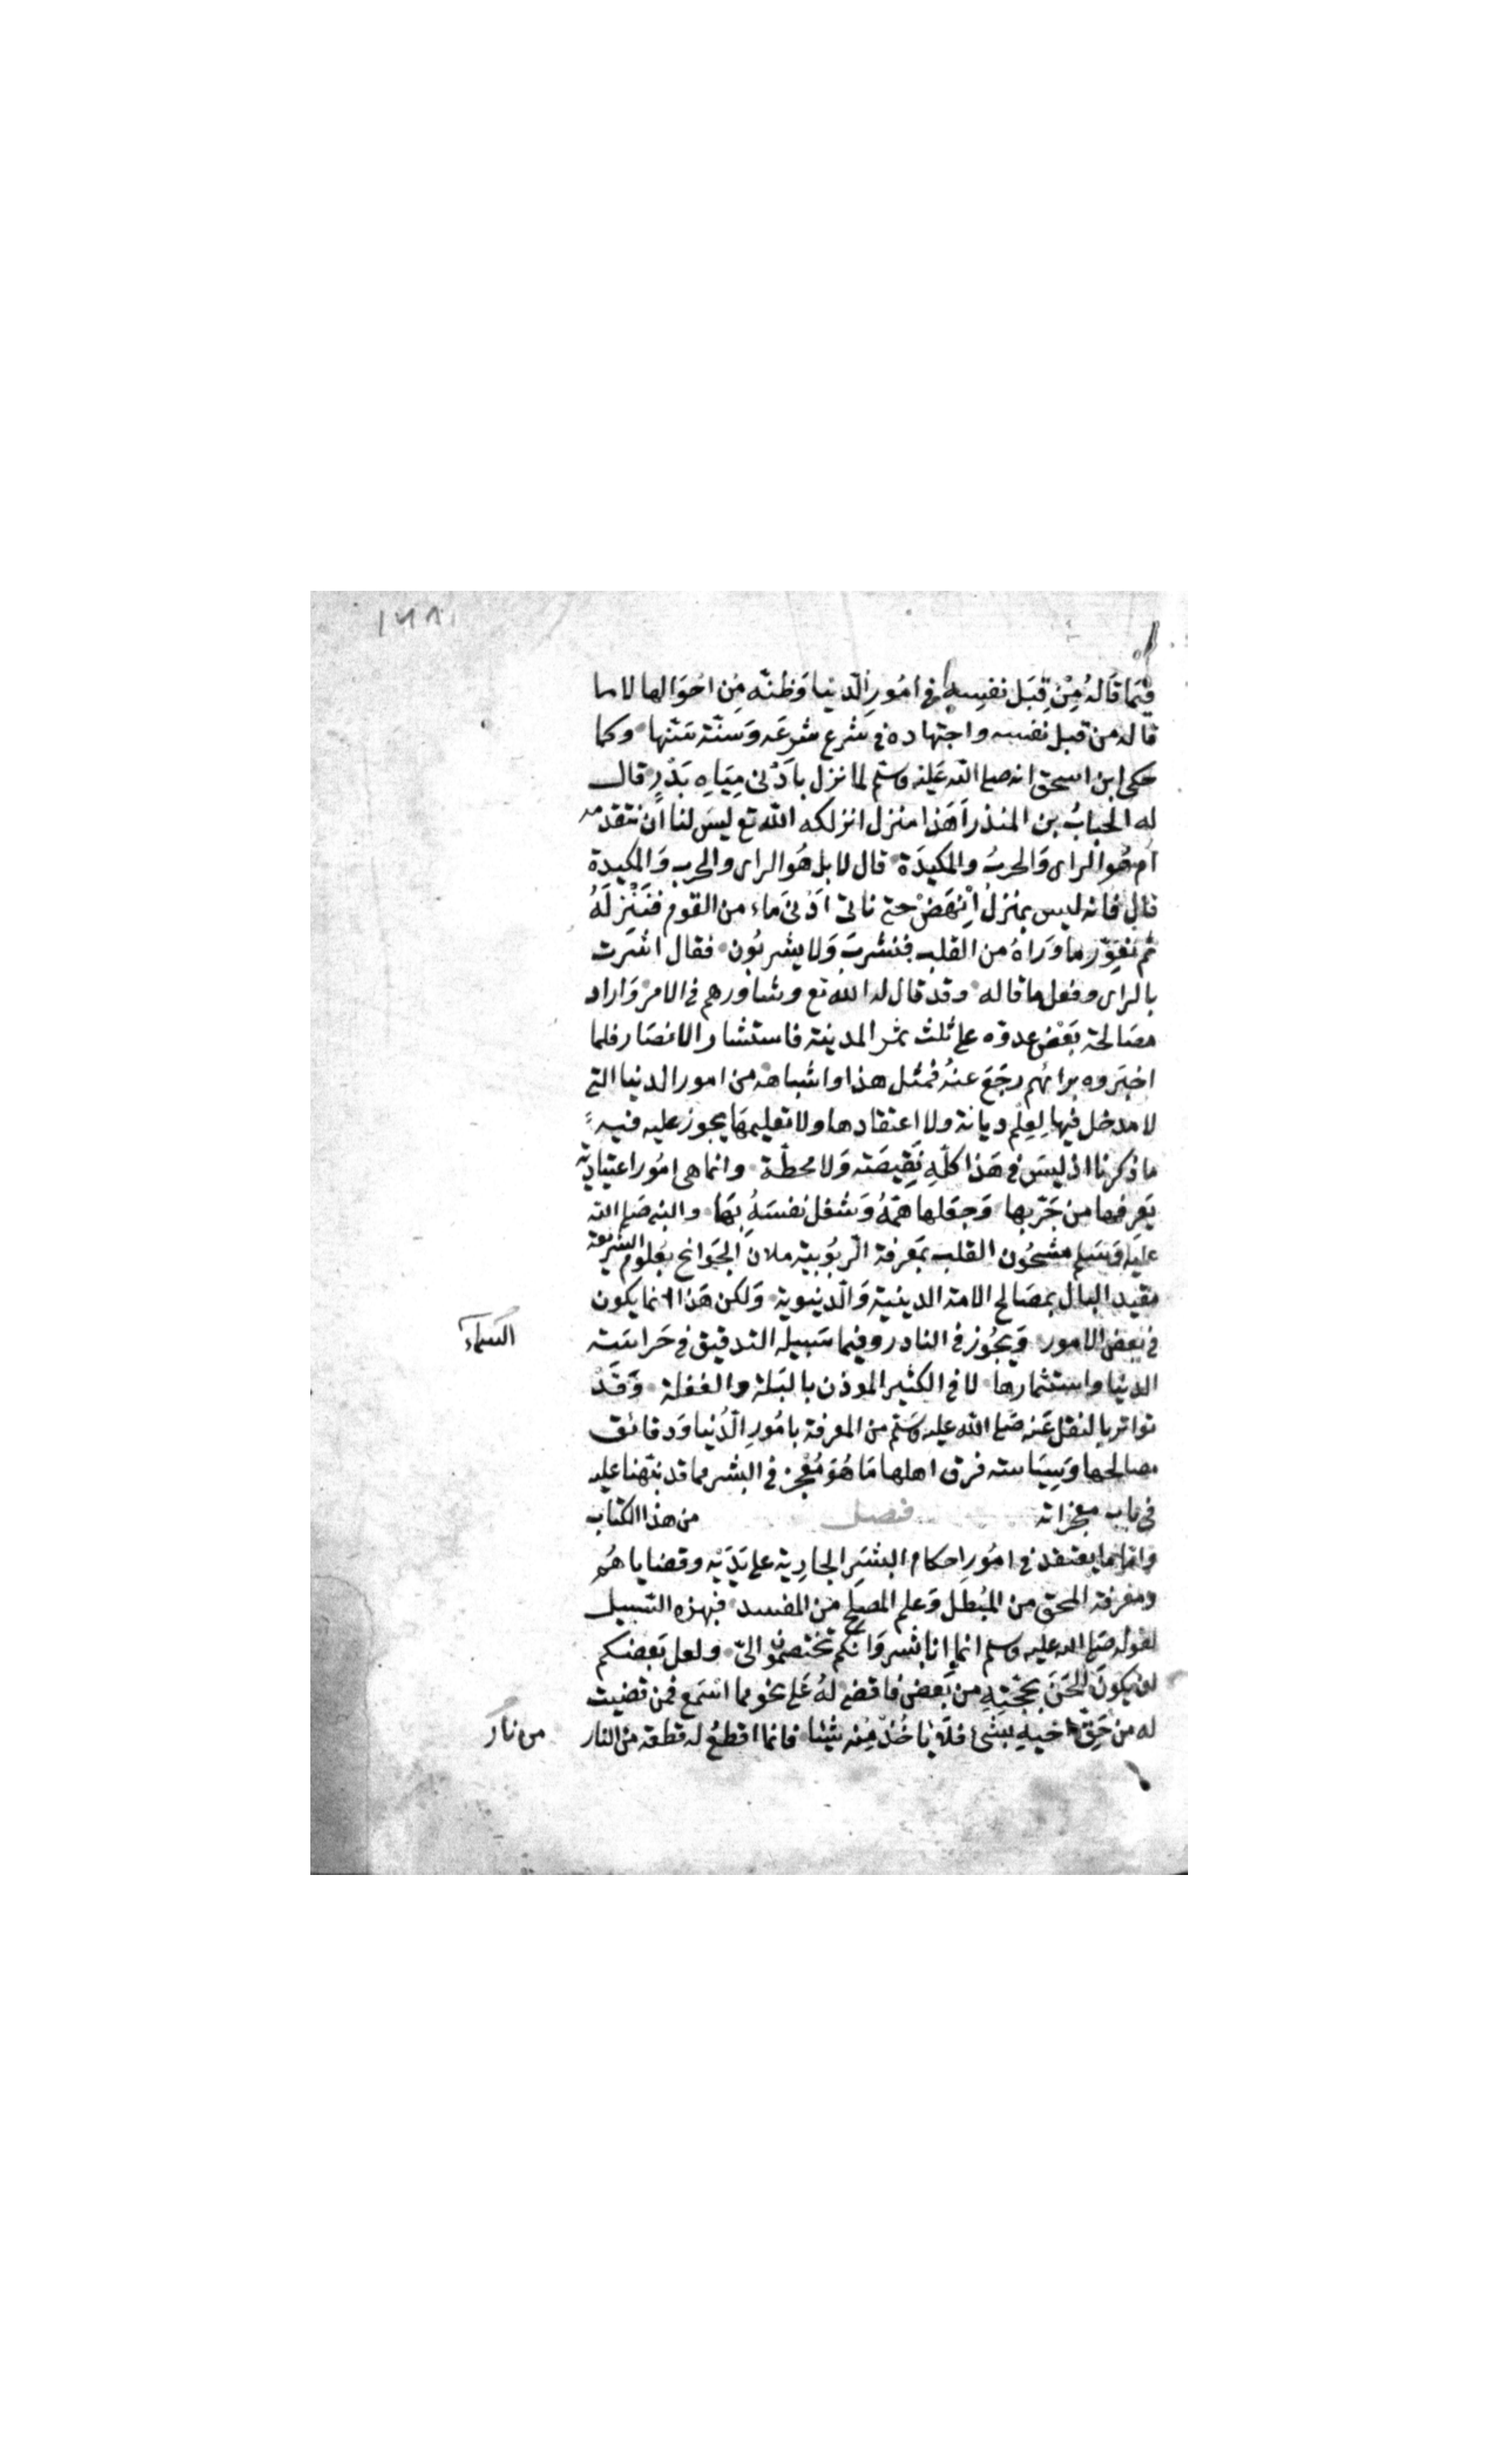 ١٧٨
فيمَا قَالهُ مِنْ قِبَل نفسِه في امُورِ الدّنيا وَظنّه مِن احْوَالها لا ما
قاله من قبل نفسه واجتهاده في شرع شرعَه وَسنّة سَنّها وكما
حكى ابن اسحق انه صلى الله عَليْه وسلم لما نزل بِادْنى مِيَاهِ بَدْرٍ قال
له الحبابُ بن المنذر اَهَذا منزل انزلكه الله تع ليسَ لنا اَن نتقدمه
اَم هُوَ الراى وَالحربُ والمكيدَة قال لا بل هُوَ الراى والحرب وَالمكيدة
قال فانه ليس بمنزل اِنْهَضْ حتى ناتى اَدْنىَ ماء من القوم فنَنْزِلَهُ
ثم نُغوّر ما وَرَاهُ من القلب فنشربَ وَلا يشربُون فقال اشرت
بالراى وفعل ما قاله وقد قال له الله تع وشاورهم في الامر وَاراد
مصَالحة بَعْض عدوّه على ثلث ثمر المدينة فاستشار الانصَار فلما
اخبَروه برائهم رجَعَ عنهُ فمثل هذا واشباهه من امور الدنيا التى
لا مدخل فيها لِعِلْم ديانة ولا اعتقادها ولا تعليمهَا يجوز عليه فيه
ما ذكرنا اذ ليسَ في هَذا كلّهِ نَقِيصَة وَلا محطّة وانما هى امُور اعتياديّة
يَعرِفها من جَرّبها وَجعَلها همّهُ وَشغل نفسَهُ بهَا والنبى صَلى الله
عليه وَسَلم مشحُون القلب بمَعرفة الرّبُوبية ملانَ الجَوانح بعُلوم الشريعة
مقيد البال بمصَالح الامة الدينية وَالدّنيوية وَلكن هَذا انما يكون
في بعض الامور وَيجُوز في النادر وفيما سَبيله التدقيق في حَراسَة
الدنيا واستثمارها لا في الكثير الموذن بالبَله والغفلة وَقَدْ
تواتر بالنقل عَنه صَلى الله عليه وَسَلم من المعرفة بامُورِ الدُّنيا وَدقائق
مصالحها وَسِيَاسة فرق اهلها مَا هُوَ مُعْجِز في البشر مما قد نبّهنا عليه
في باب معجزاته فصل من هذا الكتاب
وَامّا ما يعتقد في امُورِ احكام البشَرِ الجارِية على يَدَيْه وقضاياهُم
ومَعرفة المحق من المُبْطل وَعلم المصلح من المفسد فبهذه السّبيل
لقوله صَلى الله عليه وسلم انما انا بشر وَانكم تختصمُون الىّ ولعل بَعضكم
ان يكونَ الْحَنَ بحُجّتِهِ من بَعض فاقضى لهُ عَلى نحو مما اسْمع فمن قضيت
له من حَقّ اخيهِ بشئ فلَا يَاخُذْ مِنْه شيئا فانما اقطعُ له قطعة من النار
من نار